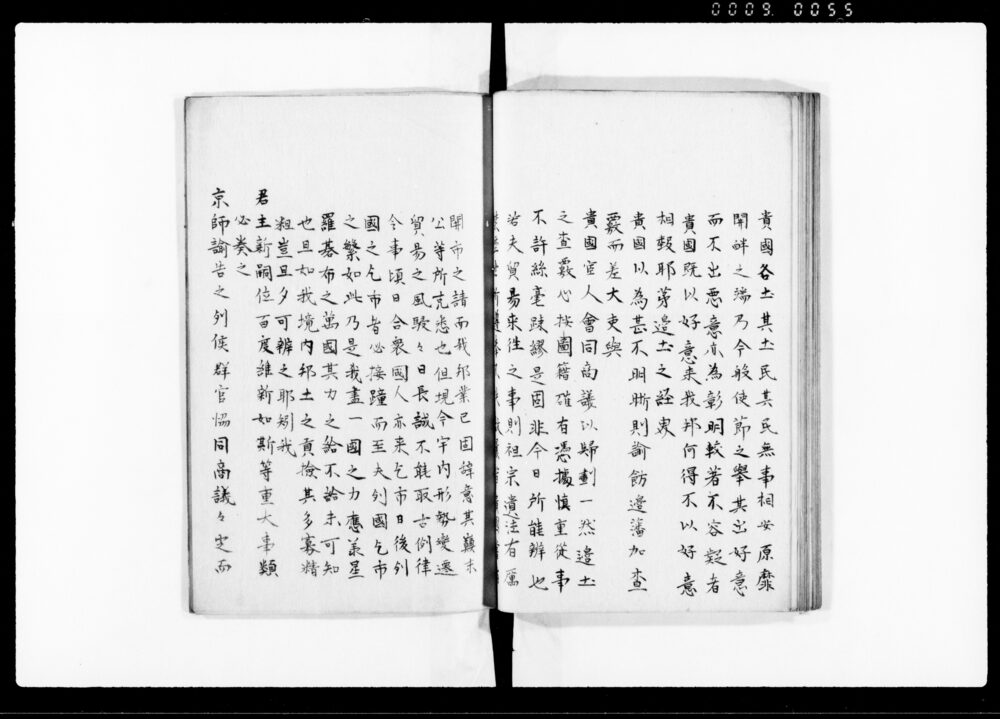 0009 0055
貴國各土其土民其民無事相安原靡
開衅之端乃今般使節之舉其出好意
而不出惡意亦為彰明較著不容疑者
貴國既以好意来我邦何得不以好意
相報耶苐邉土之経界
貴國以為甚不明晰則諭飭邉藩加查
覈而差大吏與
貴國官人會同商議以歸劃一然邉土
之查覈心按圖籍確有憑據慎重從事
不許絲毫踈繆是固非今日所能辨也
若夫貿易来往之事則祖宗遺法有厲
開市之請而我邦業已固諱意其顛末
公等所克悉也但現今宇内形勢變遷
貿易之風駸々日長誠不能取古例律
今事頃日合衆國人亦来乞市日後列
國之乞市者必接踵而至夫列國乞市
之繁如此乃是我盡一國之力應羕星
羅碁布之萬國其力之給不給未可知
也且如我境内邦土之貢撿其多寡精
粗豈旦夕可辨之耶矧我
君主新嗣位百度維新如斯等重大事類
必奏之
京師諭告之列侯群官恊同商議々定而